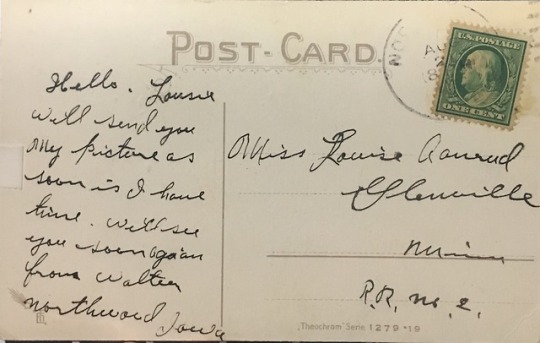 POST-CARD.
Hello. Lousie
will send you
My picture as
soon is I have
time. will see
you soon again
from Walter
northwood Iowa
NO
AU
U.S. POSTAGE
ONE CENT
Miss Louise Aamrud
Glenville
Minn
R.R. no. 2.
„Theochrom" Serie 1279 *19